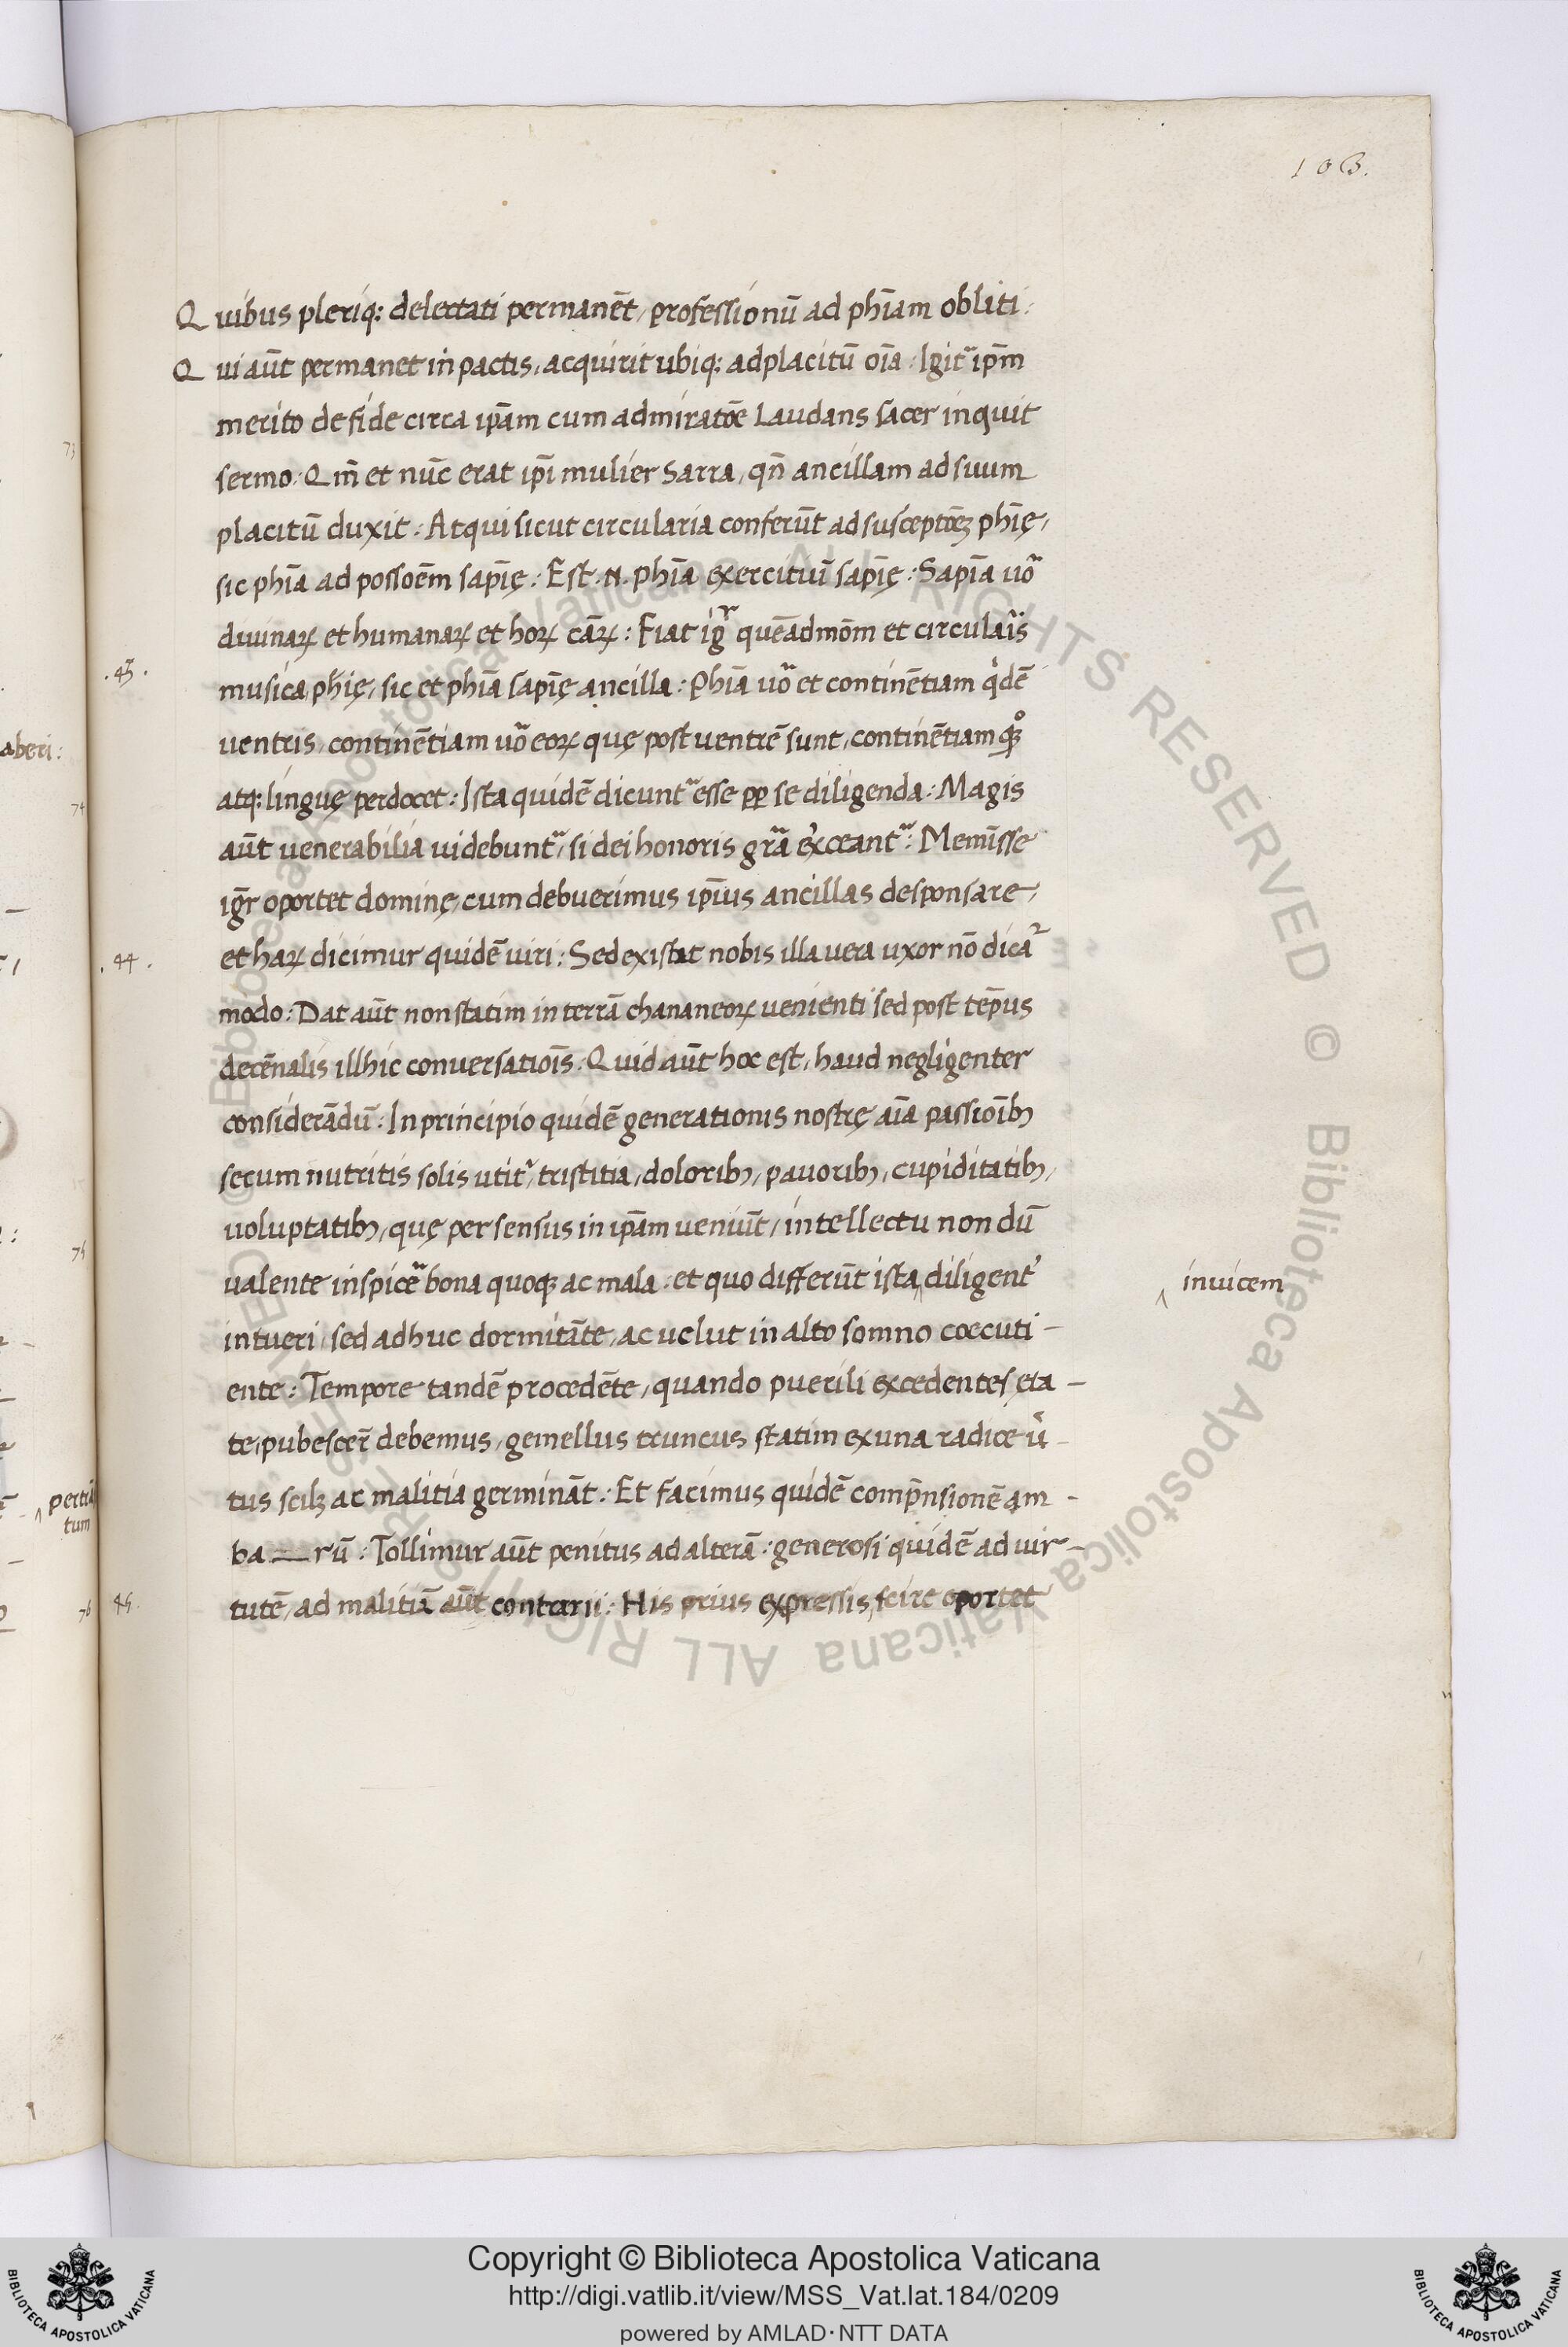 103.
Quibus pleriq: delectati permanēt, professionū ad phīam obliti:
Qui aūt permanet in pactis, acquirit ubiq: ad placitū oīa: Igit᷑ ip̄m
merito de fide circa ip̄am cum admiratōe Laudans sacer inquit
sermo. Qm̄ et nūc erat ip̄i mulier Sarra, qn̄ ancillam ad suum
placitū duxit: Atqui sicut circularia conferūt ad susceptōeꝫ phīę,
sic phīa ad possoēm sapīę: Est .N. phīa exercitiū sapīę: Sapīa uō
diuinaꝝ et humanaꝝ et hoꝝ cāꝝ: Fiat ig̃r quēadmōm et circulaīs
.43.
musica phīę, sic et phīa sapīę ancilla: Phīa uō et continētiam qͥdē
uentris, continētiam uō eoꝝ quę post uentrē sunt, continētiam qꝫͦ
atq: linguę perdocet: Ista quidē dicunt᷑ esse pp̱ se diligenda: Magis
aūt uenerabilia uidebunt᷑, si dei honoris gr̄a exͤrceant᷑: Meminīsse
ig̃r oportet dominę, cum debuerimus ipīus ancillas desponsare,
.44.
et haꝝ dicimur quidē uiri: Sed existat nobis illa uera uxor nō dicat᷑
modo: Dat aūt non statim in terrā chananeoꝝ uenienti sed post tēpus
decēnalis illhic conuersatioīs. Quid aūt hoc est, haud negligenter
considerādū: In principio quidē generationis nostrę aīa passioībꝫ
secum nutritis solis utit᷑, tristitia, doloribꝫ, pauoribꝫ, cupiditatibꝫ,
uoluptatibꝫ, quę per sensus in ip̄am ueniūt, intellectu non dū
ualente inspicē bona quoqꝫ ac mala: et quo differūt ista ‸ diligent᷑
‸ inuicem
intueri, sed adhuc dormitāte, ac uelut in alto somno coecuti-
ente: Tempore tandē procedēte, quando puerili excedentes eta-
te, pubescer̄ debemus, gemellus truncus statim ex una radice uͥ-
tus scilꝫ ac malitia germināt: Et facimus quidē comp̄nsionē am-
ba__rū: Tollimur aūt penitus ad alterā: generosi quidē ad uir-
45.
tutē, ad malitiā aūt contrarii: His prius expressis, scire oportet
aberi:
pertiā
tum
73
74
75
76
Copyright © Biblioteca Apostolica Vaticana
http://digi.vatlib.it/view/MSS_Vat.lat.184/0209
powered by AMLAD·NTT DATA
BIBLIOTECA APOSTOLICA VATICANA
BIBLIOTECA APOSTOLICA VATICANA
© Biblioteca Apostolica Vaticana ALL RIGHTS RESERVED
© Biblioteca Apostolica Vaticana ALL RIGHTS RESERVED